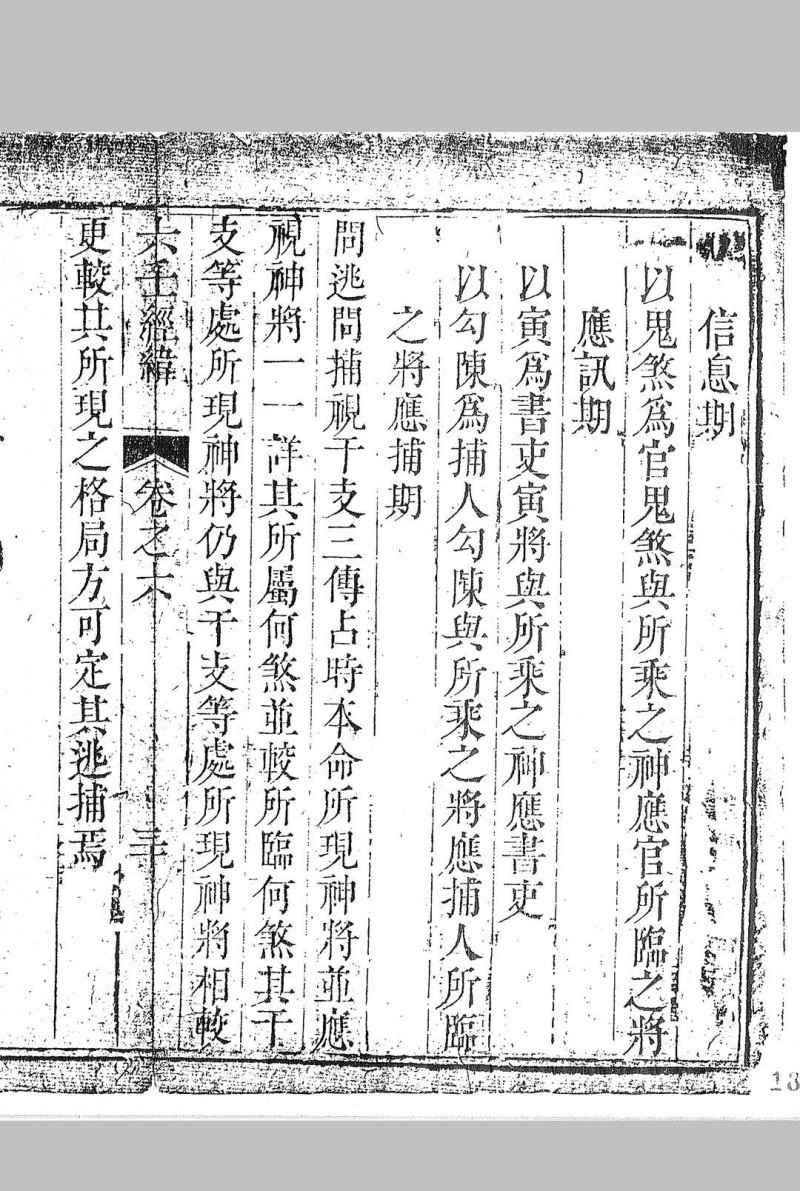 信息期
以鬼煞為官鬼煞與所乘之神應官所臨之將
應訊期
以寅為書吏寅將與所乘之神應書吏
以勾陳為捕人勾陳與所乘之將應捕人所臨
之將應捕期
問逃問捕視干支三傳占時本命所現神將並應
視神將一一詳其所屬何煞並較所臨何煞其干
支等處所現神將仍與干支等處所現神將相較
六壬經緯 卷之六 三
更較其所現之格局方可定其逃捕焉
13